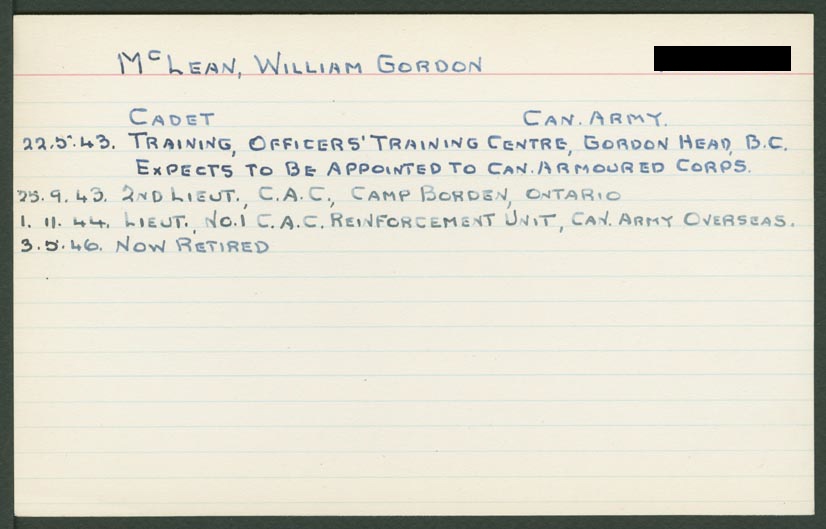 McLEAN, WILLIAM GORDON
CADET CAN. ARMY.
22.5.43. TRAINING, OFFICERS' TRAINING CENTRE, GORDON HEAD, B.C.
EXPECTS TO BE APPOINTED TO CAN. ARMOURED CORPS.
25.9.43. 2ND LIEUT., C.A.C., CAMP BORDEN, ONTARIO
1.11.44. LIEUT., NO.1 C.A.C. REINFORCEMENT UNIT, CAN. ARMY OVERSEAS.
3.5.46. NOW RETIRED